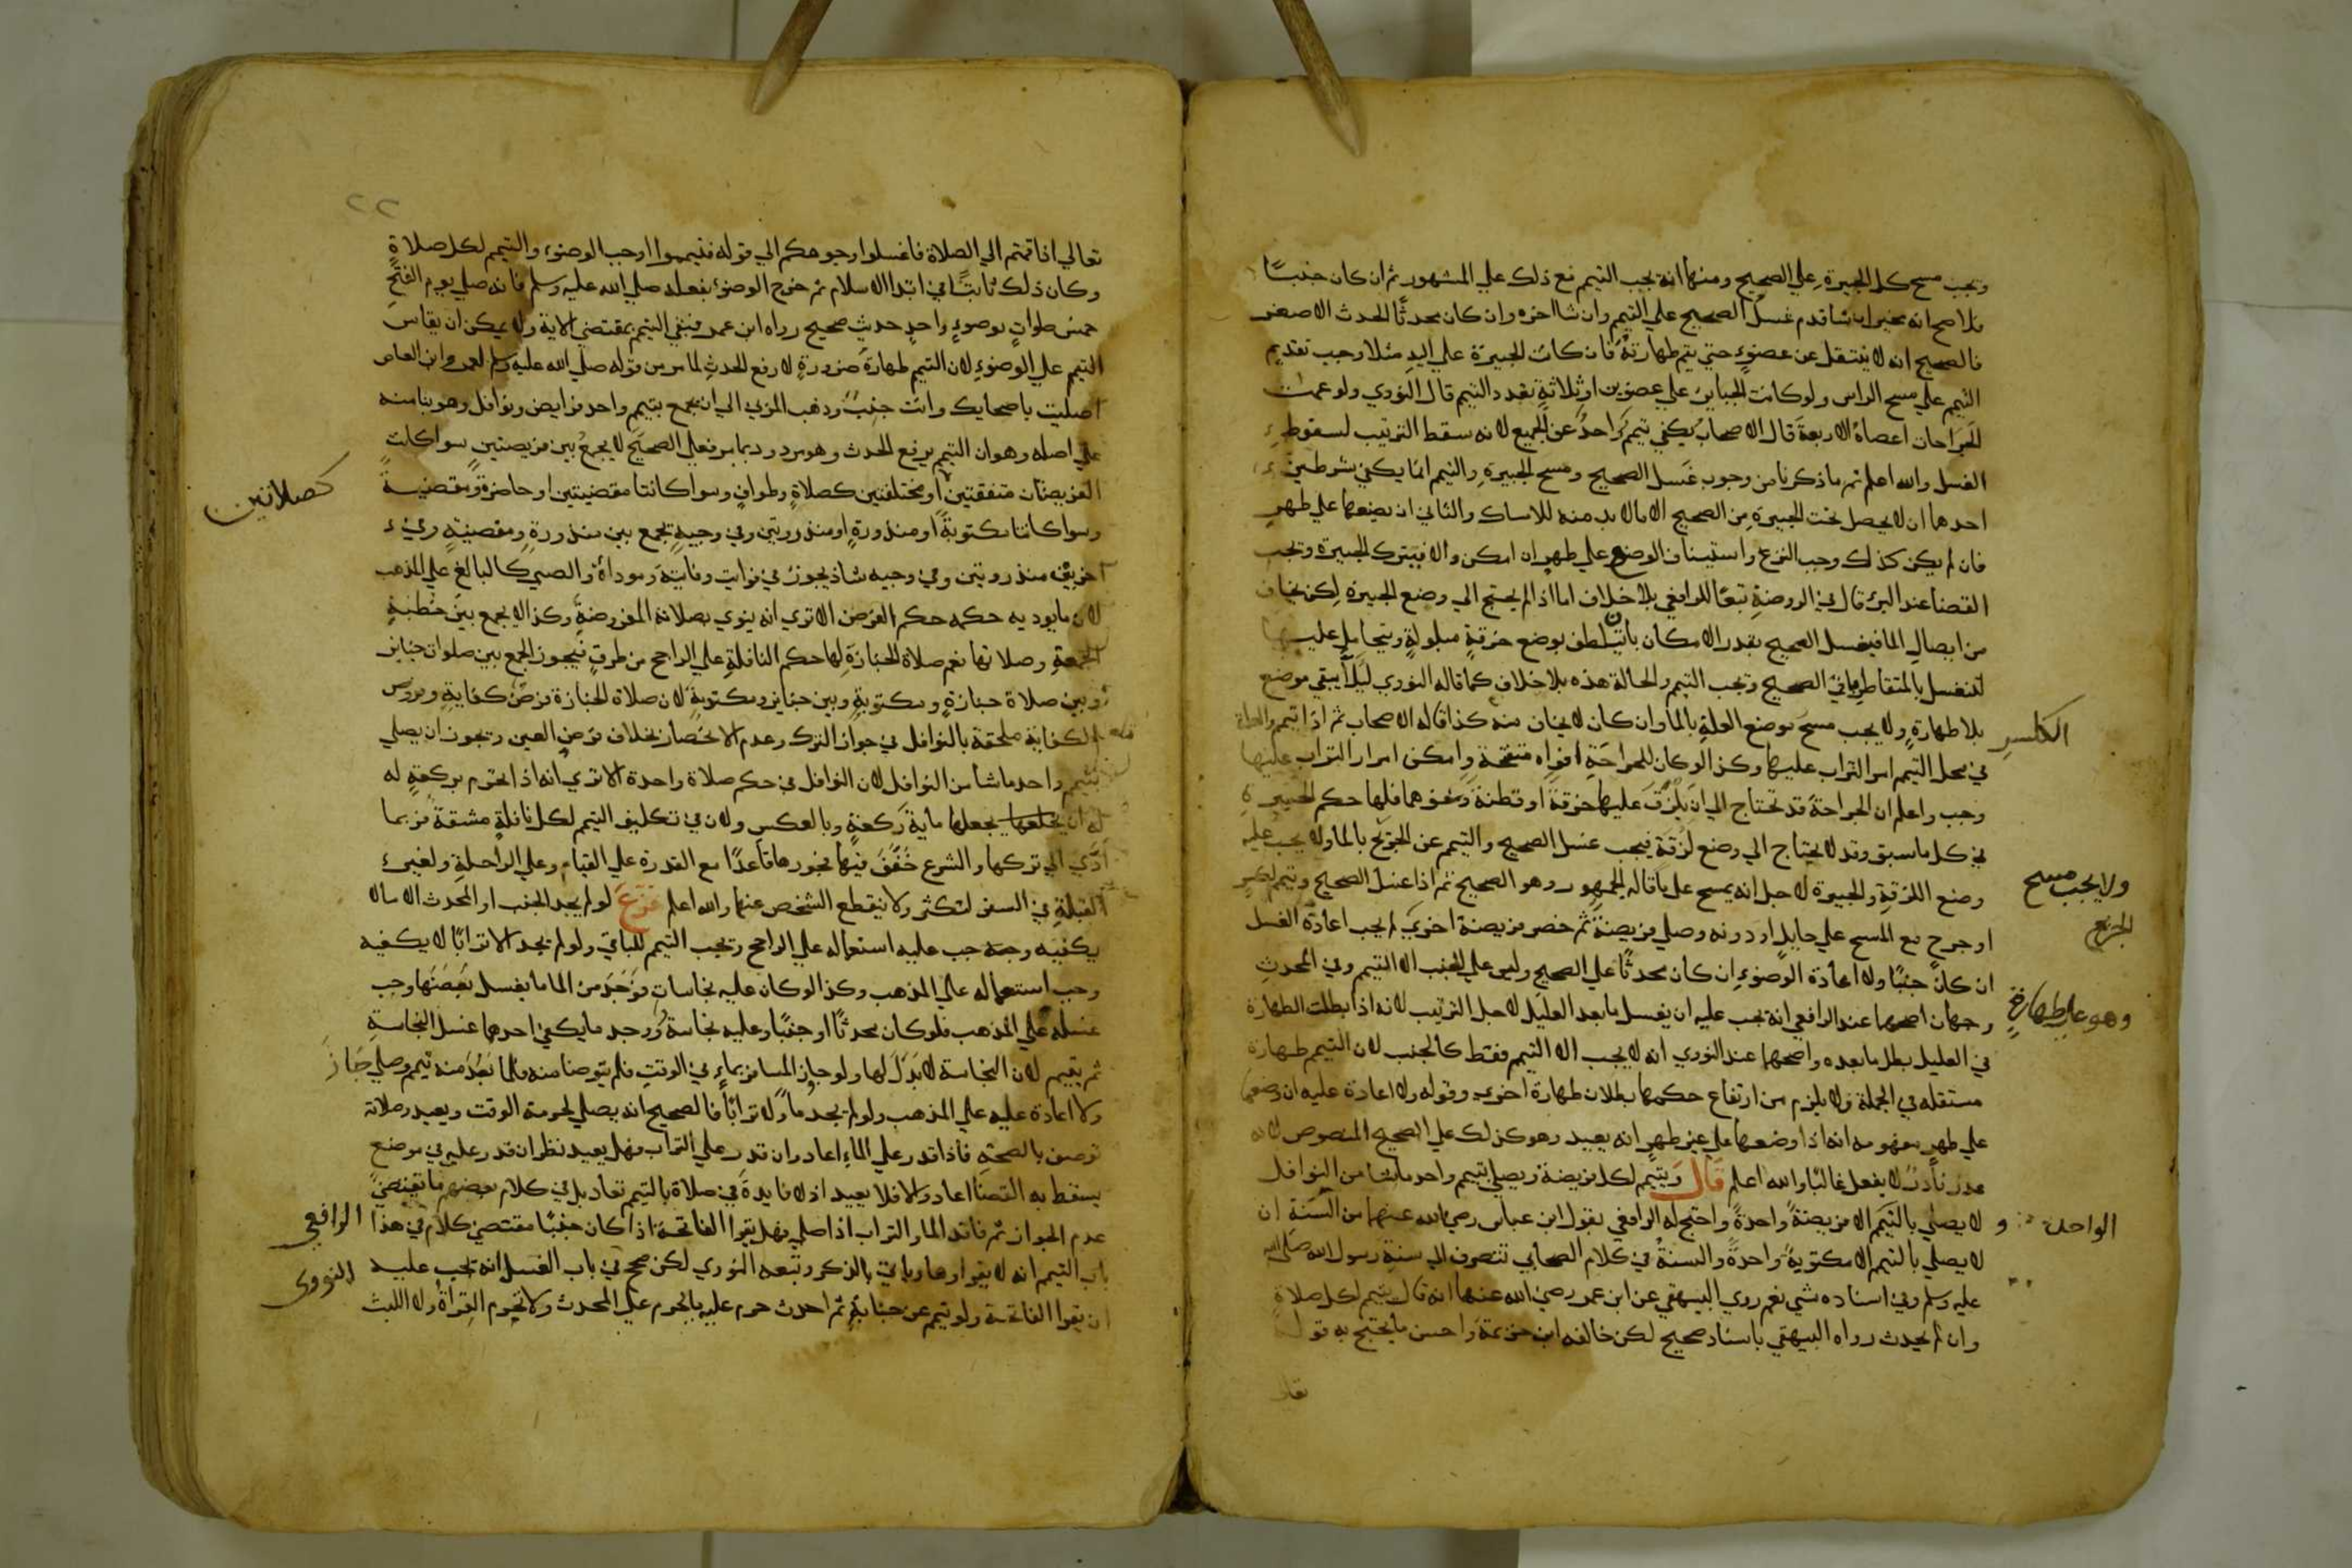 ويجب مسح كل الجبيرة علي الصحيح ومنها انه يجب التيمم مع ذلك علي المشهور ثم ان كان جنبًا
فالاصح انه مخير ان شا قدم غسل الصحيح علي التيمم وان شا اخره وان كان محدثًا الحدث الاصغر
فالصحيح انه لا ينتقل عن عضوٍ حتي يتم طهارته فان كانت الجبيرة علي اليد مثلا وجب تقديم
التيمم علي مسح الراس ولو كانت الجباير علي عضوين او ثلاثة تعدد التيمم قال النووي ولو عمت
الجراحات اعضاه الاربعة قال الاصحاب يكفي تيمم واحد عن الجميع لانه سقط الترتيب لسقوط
الغسل والله اعلم ثم ما ذكرنا من وجوب غسل الصحيح ومسح الجبيرة والتيمم انما يكفي بشرطين
احدهما ان لا يحصل تحت الجبيرة من الصحيح الا ما لا بد منه للامساك والثاني ان يضعها علي طهر
فان لم يكن كذلك وجب النزع واستيناف الوضع علي طهر ان امكن والا فيترك الجبيرة ويجب
القضا عند البرء قال في الروضة تبعًا للرافعي بلا خلاف اما اذا لم يحتج الي وضع الجبيرة لكن يخاف
من ايصال الما فيغسل الصحيح بقدر الامكان بان يتلطف بوضع خرقةٍ مبلولةٍ ويتحامل عليها
لتنغسل بالمتقاطر باقي الصحيح ويجب التيمم والحالة هذه بلا خلاف كما قاله النووي ليلا يبقي موضع
الكسر
بلا طهارةٍ ولا يجب مسح موضع العلة بالما وان كان لا يخاف منه كذا قاله الاصحاب ثم اذا تيمم والعلة
في محل التيمم امر التراب عليها وكذا لو كان للجراحة افواه منفتحة وامكن امرار التراب عليها
وجب واعلم ان الجراحة قد تحتاج الي ان يلزق عليها خرقة او قطنة ونحوهما فلها حكم الجبيرة
في كل ما سبق وقد لا يحتاج الي وضع لزقة فيجب غسل الصحيح والتيمم عن الجريح بالما ولا يجب عليه
ولا يجب مسح الجريح
وضع اللزقة والجبيرة لاجل انه يمسح عليها قاله الجمهور وهو الصحيح ثم اذا غسل الصحيح وتيمم لكسر
او جرح مع المسح علي حايل او دونه وصلي فريضة ثم حضر فريضة اخري لم يجب اعادة الغسل
ان كان جنبًا ولا اعادة الوضوء ان كان محدثًا علي الصحيح وليس علي الجنب الا التيمم وفي المحدث
وهو علي طهارته
وجهان اصحهما عند الرافعي انه يجب عليه ان يغسل ما بعد العليل لاجل الترتيب لانه اذا بطلت الطهارة
في العليل بطل ما بعده واصحهما عند النووي انه لا يجب الا التيمم فقط كالجنب لان التيمم طهارة
مستقله في الجملة ولا يلزم من ارتفاع حكمها بطلان طهارة اخري وقوله ولا اعادة عليه ان وضعها
علي طهر مفهومه انه اذا وضعها علي غير طهر انه يعيد وهو كذلك علي الصحيح المنصوص لانه
عذر نادر لا يفعل غالبًا والله اعلم قال ويتيمم لكل فريضة ويصلي بتيمم واحد ما شا من النوافل
الواحد
و لا يصلي بالتيمم الا فريضةً واحدةً واحتج له الرافعي بقول ابن عباس رضي الله عنهما من السنة ان
لا يصلي بالتيمم الا مكتوبةً واحدةً والسنة في كلام الصحابي تنصرف الي سنة رسول الله صلي الله
عليه وسلم وفي اسناده شي نعم روي البيهقي عن ابن عمر رضي الله عنهما انه قال يتيمم لكل صلاةٍ
وان لم يحدث رواه البيهقي باسناد صحيح لكن خالفه ابن خزيمة واحسن ما يحتج به قوله
تعا
٢٢
تعالي اذا قمتم الي الصلاة فاغسلوا وجوهكم الي قوله فتيمموا اوجب الوضوء والتيمم لكل صلاةٍ
وكان ذلك ثابتًا في ابتدا الاسلام ثم خرج الوضوء بفعله صلي الله عليه وسلم فانه صلي يوم الفتح
خمس صلواتٍ بوضوءٍ واحدٍ حديث صحيح رواه ابن عمر فبقي التيمم بمقتضي الاية ولا يمكن ان يقاس
التيمم علي الوضوء لان التيمم طهارة ضرورة لا رفع الحدث لما مر من قوله صلي الله عليه وسلم لعمرو ابن العاص
اصليت باصحابك وانت جنب وذهب المزني الي ان يجمع بتيمم واحد فرايض ونوافل وهو بنا منه
علي اصله وهو ان التيمم يرفع الحدث وهو مردود بما مر فعلي الصحيح لا يجمع بين فريضتين سوا كانت
الفريضتان متفقتين او مختلفتين كصلاةٍ وطوافٍ وسوا كانتا مقضيتين او حاضرة ومقضية
كصلاتين
وسوا كانتا مكتوبةً او منذورةٍ او منذورتين وفي وجيهٍ يجمع بين منذورةٍ ومقضيةٍ وفي
اخر بين منذورتين وفي وجيه شاذ يجوز في فوايت وفايتة وموداة والصبي كالبالغ علي المذهب
لان ما يوديه حكمه حكم الفرض الا تري انه ينوي بصلاته المفروضة وكذا لا يجمع بين خطبة
الجمعة وصلاتها نعم صلاة الجنازة لها حكم النافلة علي الراجح من طرق فيجوز الجمع بين صلوات جنايز
وبين صلاة جنازةٍ ومكتوبةٍ وبين جنايز ومكتوبة لان صلاة الجنازة فرض كفاية وفروض
الكفاية ملحقة بالنوافل في جواز الترك وعدم الانحصار بخلاف فرض العين ويجوز ان يصلي
بتيمم واحد ما شا من النوافل لان النوافل في حكم صلاة واحدة الا تري انه اذا احرم بركعةٍ له
له ان يجعلها يجعلها ماية ركعة وبالعكس ولان في تكليف التيمم لكل نافلة مشقة فربما
ادي الي تركها والشرع خفف فيها فجوزها قاعدًا مع القدرة علي القيام وعلي الراحلة ولغير
القبلة في السفر لتكثر ولا ينقطع الشخص عنها والله اعلم فرع لو لم يجد الجنب او المحدث الا ما لا
يكفيه وجب عليه استعماله علي الراجح ويجب التيمم للباقي ولو لم يجد الا ترابًا لا يكفيه
وجب استعماله علي المذهب وكذا لو كان عليه نجاسات فوجد من الما ما يغسل بعضها وجب
غسله علي المذهب فلو كان محدثًا او جنبًا وعليه نجاسة ووجد ما يكفي احدهما غسل النجاسة
ثم تيمم لان النجاسة لا بدل لها ولو جاز المسافر بماءٍ في الوقت فلم يتوضا منه فلما بعد منه تيمم وصلي جاز
ولا اعادة عليه علي المذهب ولو لم يجد ماءً ولا ترابًا فالصحيح انه يصلي لحرمة الوقت ويعيد وصلاته
توصف بالصحة فاذا قدر علي الماء اعاد وان قدر علي التراب فهل يعيد نظر ان قدر عليه في موضع
يسقط به القضا اعاد والا فلا يعيد اذ لا فايدة في صلاة بالتيمم تعاد بل في كلام بعضهم ما يقتضي
عدم الجواز ثم فاقد الما والتراب اذا صلي فهل يقرا الفاتحة اذا كان جنبًا مقتضي كلام في هذا
الرافعي
باب التيمم انه لا يقراوها وياتي بالذكر وتبعه النووي لكن صحح في باب الغسل انه يجب عليه
النووي
ان يقرا الفاتحة ولو تيمم عن جنابةٍ ثم احدث حرم عليه ما يحرم علي المحدث ولا تحرم القراة ولا اللبث